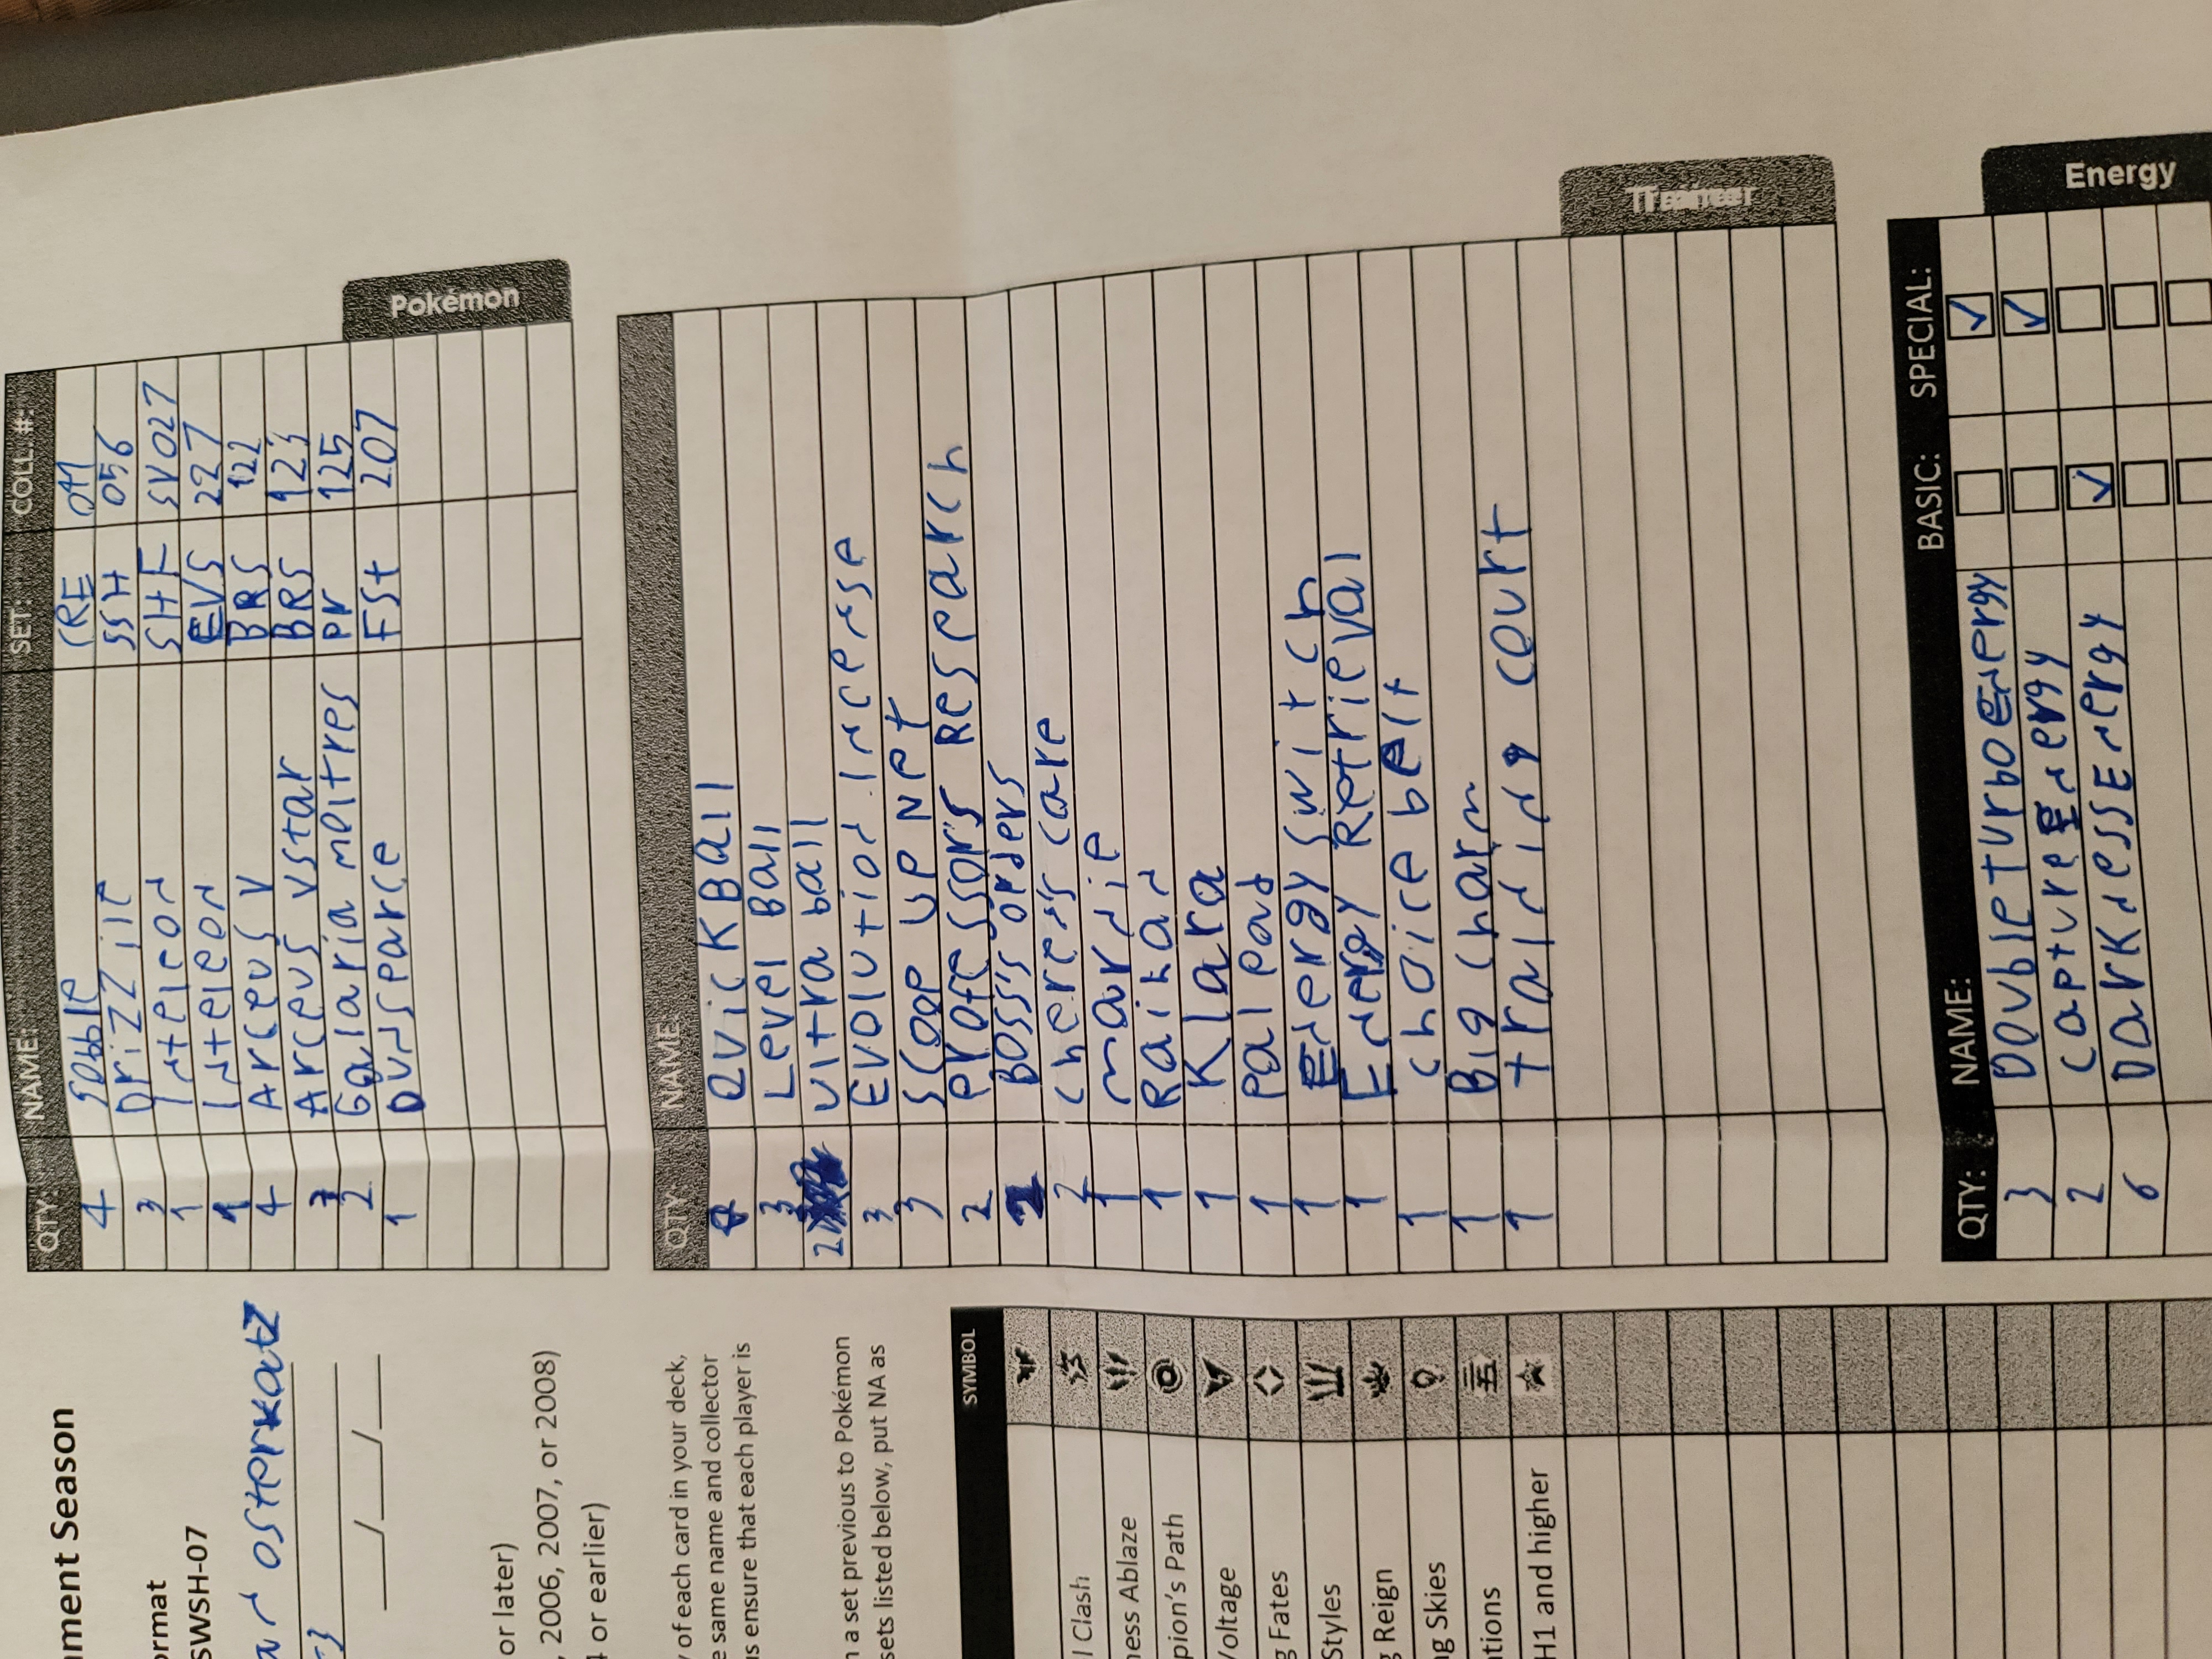 nment Season
ormat
SWSH-07
osterkatz
___/___/___
or later)
, 2006, 2007, or 2008)
or earlier)
of each card in your deck,
e same name and collector
us ensure that each player is
n a set previous to Pokémon
sets listed below, put NA as
SYMBOL
l Clash
ness Ablaze
pion's Path
Voltage
g Fates
Styles
g Reign
ng Skies
tions
H1 and higher
QTY: NAME: SET: COLL. #:
4 Sobble CRE 041
3 Drizzile SSH 056
1 Inteleon SHF SV027
1 Inteleon EVS 227
4 Arceus V BRS 122
3 Arceus vstar BRS 123
2 Galaria moltres Pr 125
1 Dunsparce FSt 207
Pokémon
QTY: NAME:
QuickBall
3 Level Ball
2 ultra ball
3 Evolution Incense
3 scoop up Net
2 professor's Research
Boss's orders
2 cheren's care
1 marnie
1 Raihan
1 Klara
1 pal pad
1 Energy switch
1 Energy Retrieval
1 choice belt
1 Big charm
1 training court
Trainer
QTY: NAME: BASIC: SPECIAL:
3 Double turbo Energy ✓
2 capture Energy ✓
6 Darkness Energy ✓
Energy